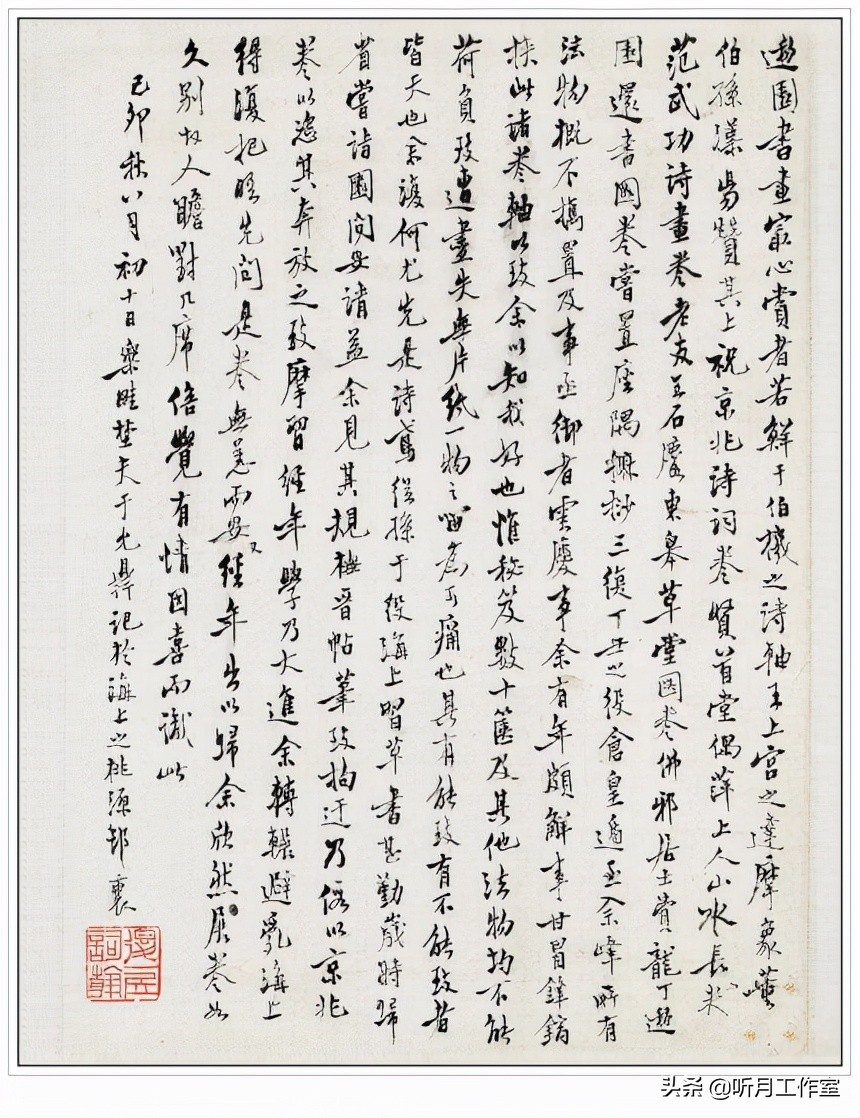 遯園書畫家心賞者若鮮于伯機之詩軸王上宮之達摩象黃
伯孫漢易贊其上祝京兆詩詞卷賢首堂偶萍上人山水長卷
范武功詩畫卷老友王石廬東皋草堂圖卷佛邪居士賞龍丁遯
園還書圖卷嘗置座隅摩抄三復丁丑之役倉皇遁至余峰所有
法物概不攜置及事亟御者雲慶事余有年頗解事甘冒鋒鏑
挾此諸卷軸以致余以知我好也惟秘笈數十篋及其他法物均不能
荷負致遺盡失無片紙一物之留為可痛也其有能致有不能致者
皆天也余復何尤先是詩鳶從孫于役海上習草書甚勤歲時歸
省嘗詣園問安請益余見其規橅晉帖輩致拘迂乃假以京兆
卷以恣其奔放之致摩習經年學乃大進余轉輾避亂海上
得復把晤先問是卷無恙而安又經年出以歸余欣然展卷如
久別故人瞻對几席倍覺有情因喜而識此
己卯秋八月初十日樂畦埜夫于允鼎記於海上之桃源邨裏
頭条 @听月工作室